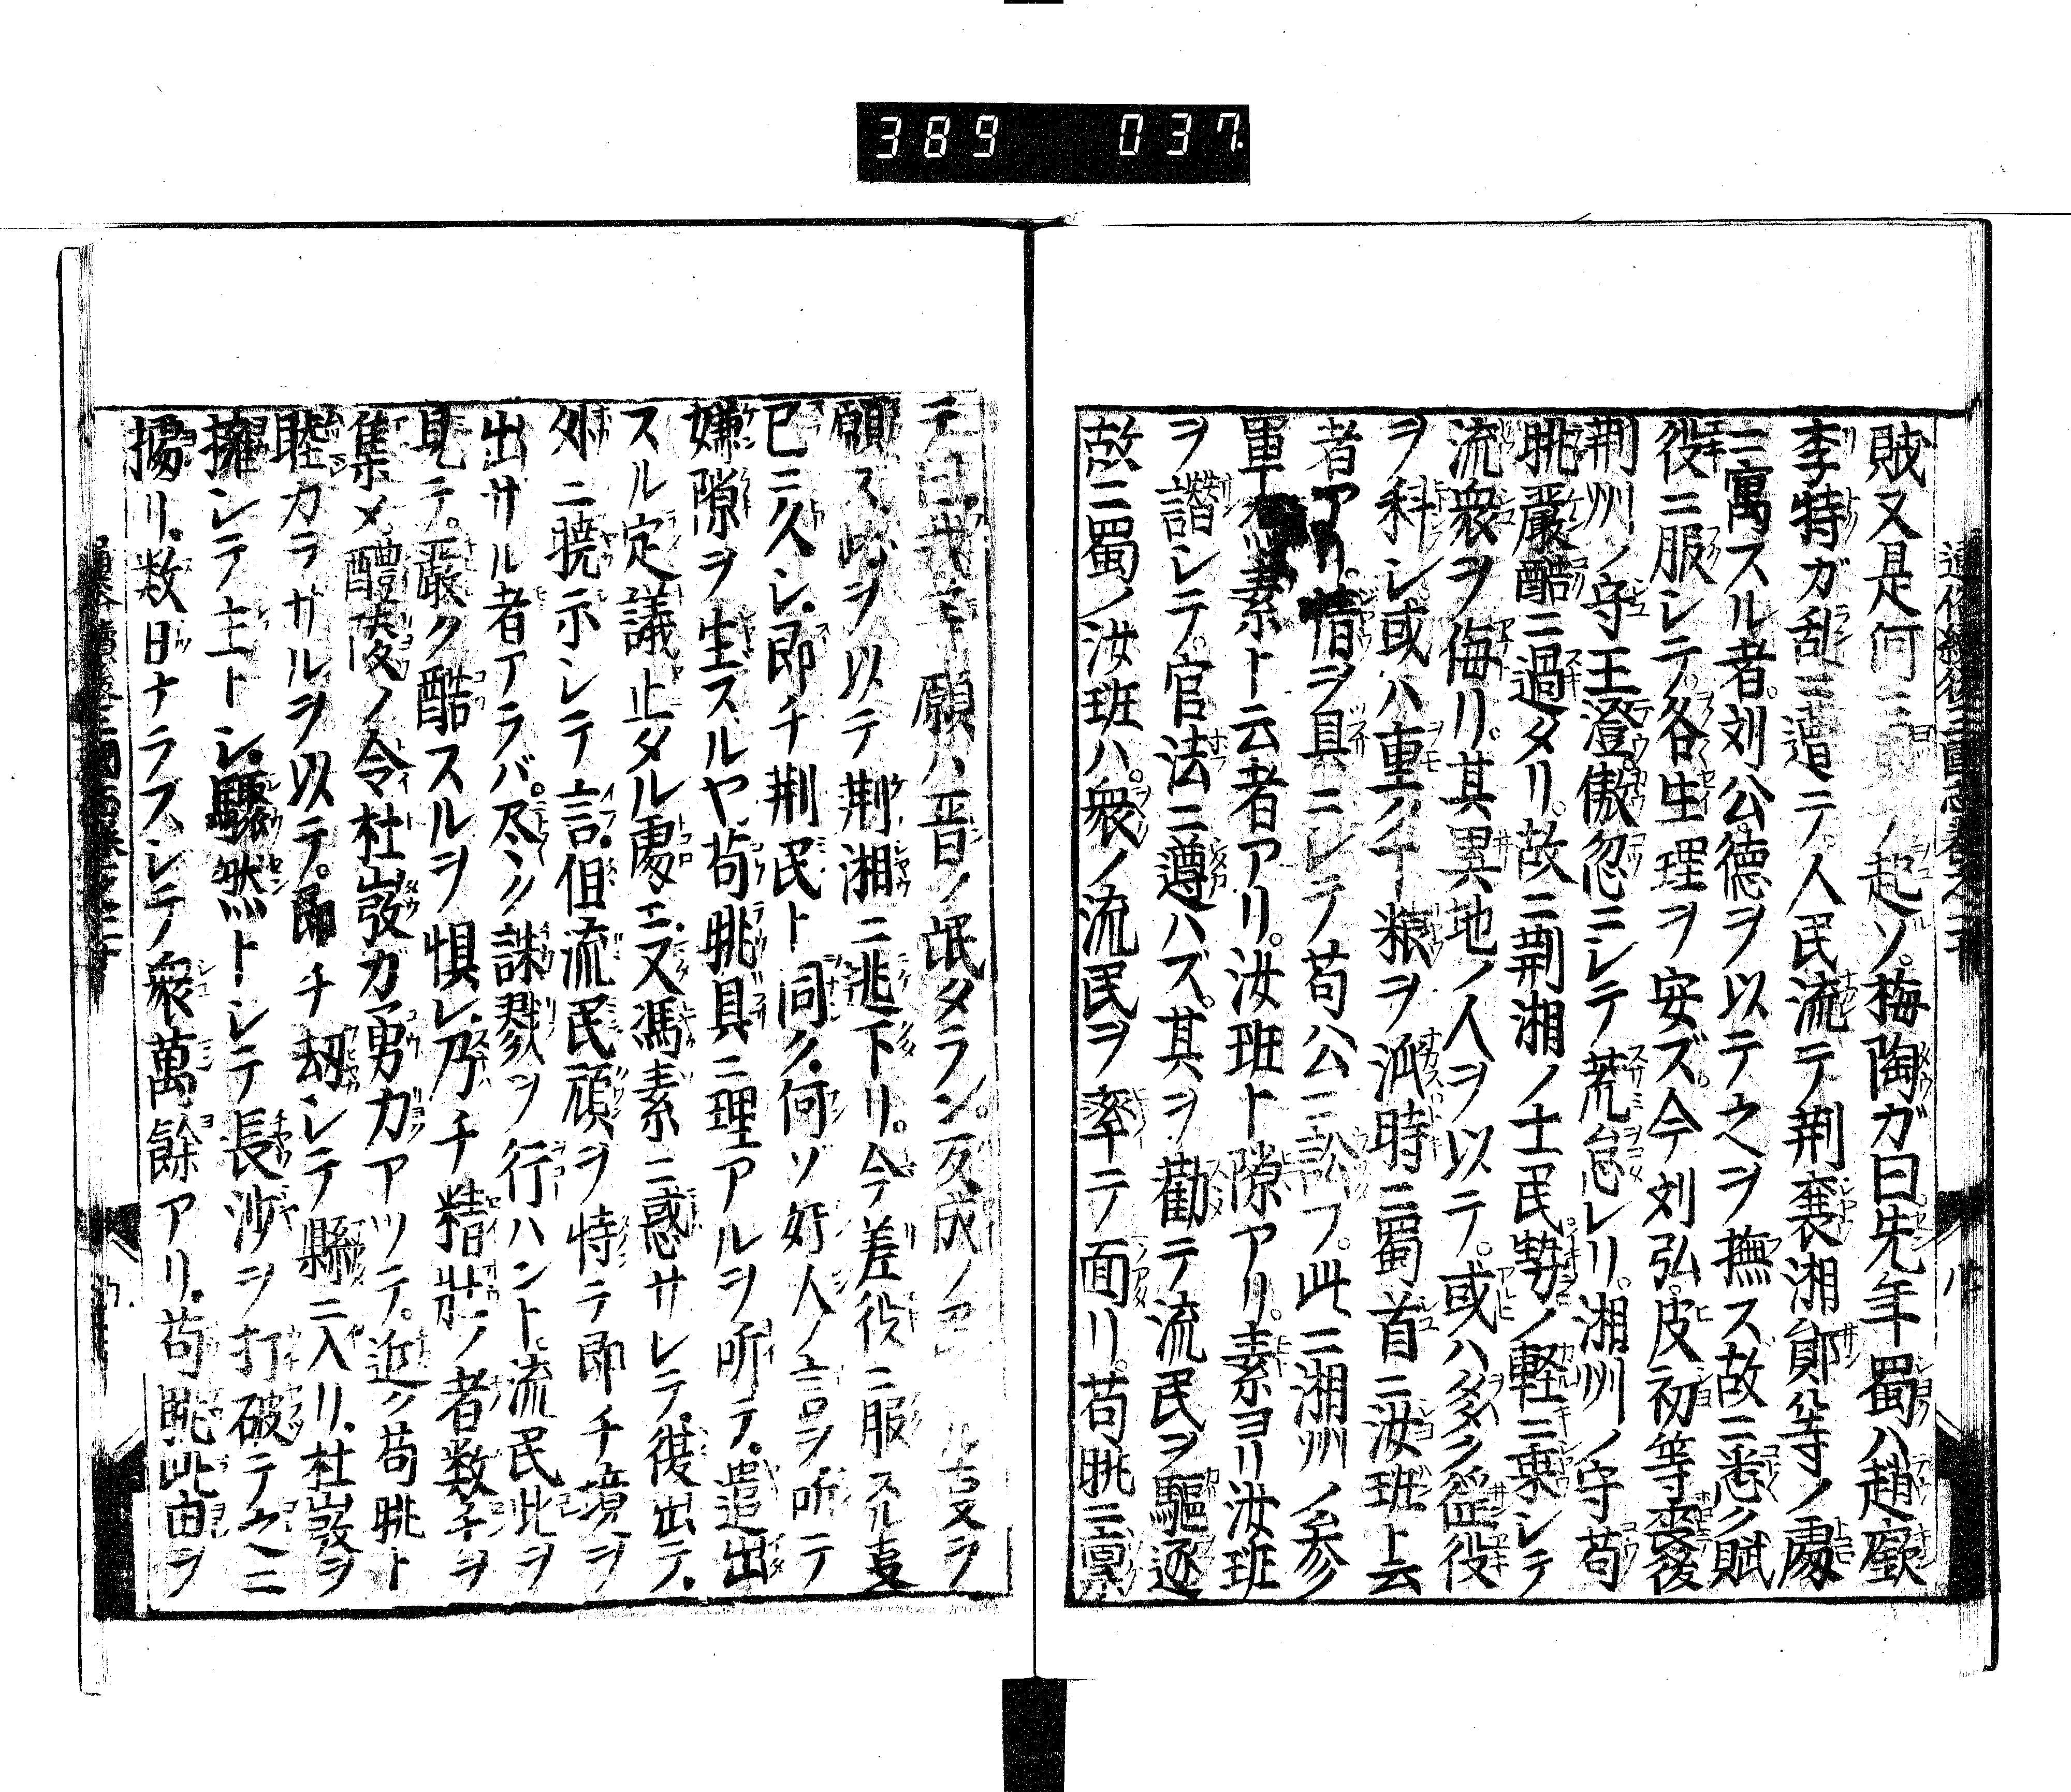 389 037
賊又是何ニノ起ソ。梅陶ガ曰先年蜀ハ趙廞
李特ガ乱ニ遭テ。人民流テ荆襄湘鄖等ノ處
ニ寓スル者。刘公德ヲ以テ之ヲ撫ス故ニ悉ク賦
役ニ服シテ。各生理ヲ安ズ。今刘弘。皮初等喪後
荆州ノ守王澄傲忽ニシテ荒怠レリ。湘州ノ守苟
眺嚴酷ニ過タリ。故ニ荆湘ノ士民勢ノ輕ニ乗シテ
流衆ヲ侮リ。其異地ノ人ヲ以テ。或ハ多ク徭役
ヲ科シ。或ハ重ク粮ヲ派時ニ蜀首ニ汝班ト云
者アリ。情ヲ具ニシテ苟公ニ訟フ。此ニ湘州ノ参
軍素ト云者アリ。汝班ト隙アリ。素ヨリ汝班
ヲ譖シテ。官法ニ遵ハズ。其ヲ勸テ流民ヲ驅逐
故ニ蜀ノ汝班ハ。衆ノ流民ヲ率テ面リ。苟眺ニ稟
テ曰願ハ晋ノ氓タラン。反成ノヲ
願ス。此ヲ以テ荆湘ニ逃下リ。今差役ニ服スル支
已ニ久シ。即チ荆民ト同ク。何ソ奸人ノ言ヲ听テ
嫌隙ヲ生スルヤ。苟眺具ニ理アルヲ听テ。遣出
スル定議止タル處ニ。又馮素ニ惑サレテ。復出テ。
外ニ曉示シテ言。但流民頑ヲ恃テ即チ境ヲ
出サル者アラバ。尽ク誅戮ヲ行ハント。流民此ヲ
見テ。嚴ク酷スルヲ惧レ。乃チ精壯ノ者数千ヲ
集メ醴陵ノ令杜弢ガ勇力アツテ。近ク苟眺ト
睦カラサルヲ以テ。即チ刼シテ縣ニ入リ。杜弢ヲ
擁シテ主トシ。驟然トシテ長沙ヲ打破テ之ニ
據リ。数日ナラスシテ衆萬餘アリ。苟眺此由ヲ